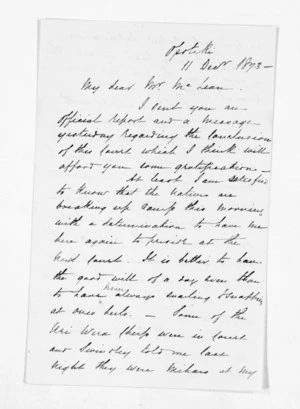 Opotiki
11 Decr 1873 -
My dear Mr McLean
I sent you an
official report and a message
yesterday regarding the conclusion
of this Court which I think will
afford you some gratification -
At least I am satisfied
to know that the natives are
breaking up camp this morning
with a determination to have me
here again to preside at the
next Court. It is better to have
the good will of a day even than
to have always snarling &
at ones heels. - Some of the
Uri Wera Chiefs were in Court
and Swindley told me last
night they were at my